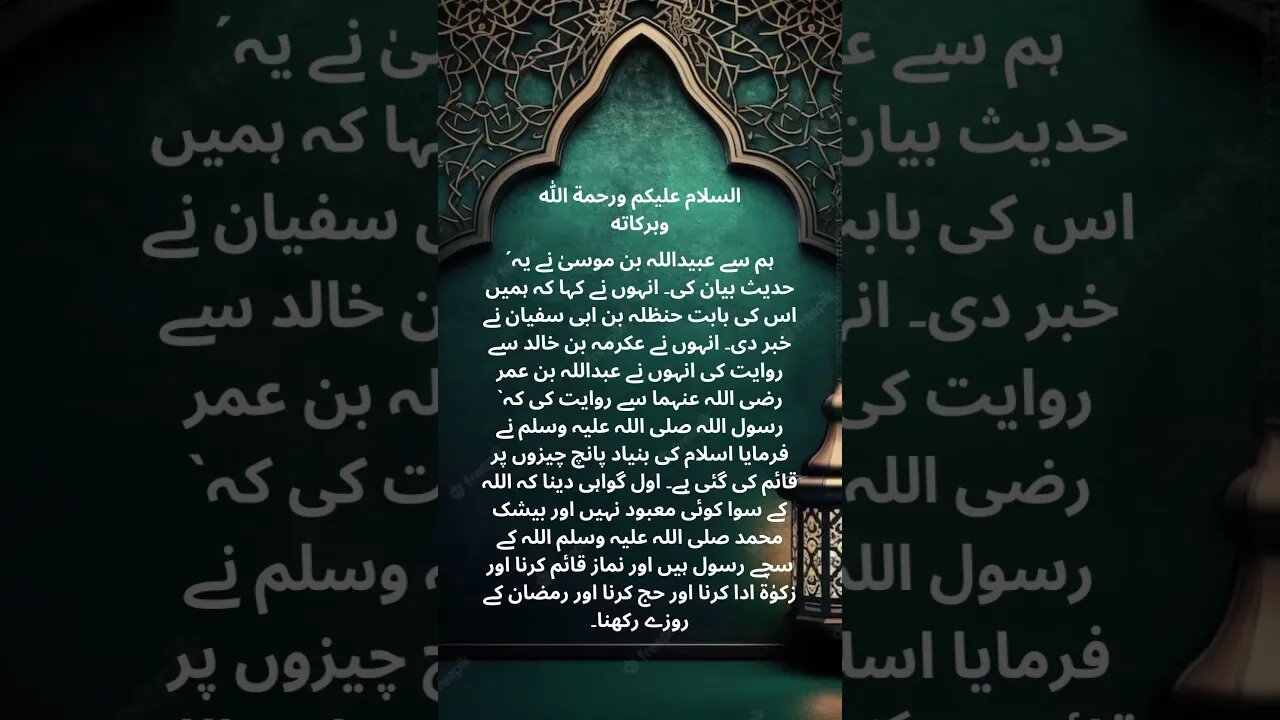 السلام عليكم ورحمة الله
وبركاته
ہم سے عبیداللہ بن موسیٰ نے یہ´
حدیث بیان کی۔ انہوں نے کہا کہ ہمیں
اس کی بابت حنظلہ بن ابی سفیان نے
خبر دی۔ انہوں نے عکرمہ بن خالد سے
روایت کی انہوں نے عبداللہ بن عمر
رضی اللہ عنہما سے روایت کی کہ`
رسول اللہ صلی اللہ علیہ وسلم نے
فرمایا اسلام کی بنیاد پانچ چیزوں پر
قائم کی گئی ہے۔ اول گواہی دینا کہ اللہ
کے سوا کوئی معبود نہیں اور بیشک
محمد صلی اللہ علیہ وسلم اللہ کے
سچے رسول ہیں اور نماز قائم کرنا اور
زکوٰۃ ادا کرنا اور حج کرنا اور رمضان کے
روزے رکھنا۔